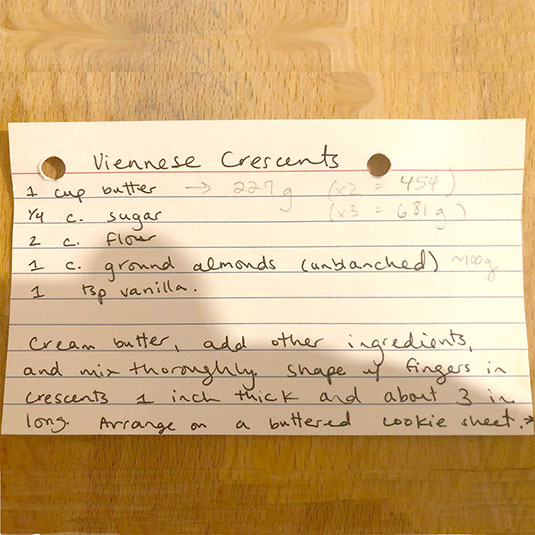 Viennese Crescents
1 cup butter → 227 g (x2 = 454)
1/4 c. sugar (x3 = 681 g)
2 c. flour
1 c. ground almonds (unblanched) ~100g
1 tsp vanilla.
Cream butter, add other ingredients,
and mix thoroughly. Shape w/ fingers in
crescents 1 inch thick and about 3 in.
long. Arrange on a buttered cookie sheet. →